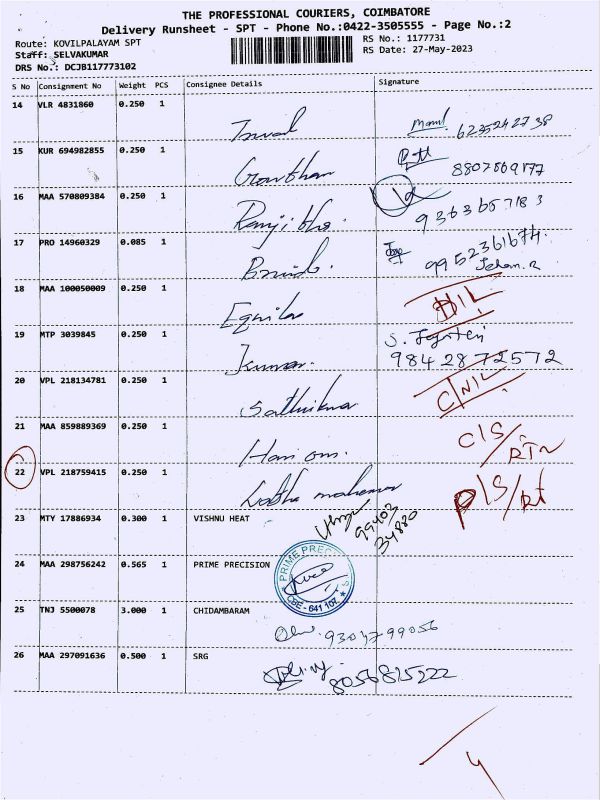 THE PROFESSIONAL COURIERS, COIMBATORE
Delivery Runsheet - SPT - Phone No.:0422-3505555 - Page No.:2
Route: KOVILPALAYAM SPT
RS No.: 1177731
Staff: SELVAKUMAR
RS Date: 27-May-2023
DRS No.: DCJB117773102
S No Consignment No Weight PCS Consignee Details Signature
14 VLR 4831860 0.250 1
6235242738
15 KUR 694982855 0.250 1
Gowtham 8807869177
16 MAA 570809384 0.250 1
9363657183
17 PRO 14960329 0.085 1
9952361674
18 MAA 100050009 0.250 1
NIL
19 MTP 3039845 0.250 1
Kumar. 9842872572
20 VPL 218134781 0.250 1
C/NIL
21 MAA 859889369 0.250 1
Hari om. C/S/RTN
22 VPL 218759415 0.250 1
P/S/Rt
23 MTY 17886934 0.300 1 VISHNU HEAT
99403
34880
24 MAA 298756242 0.565 1 PRIME PRECISION
CBE - 641 107
25 TNJ 5500078 3.000 1 CHIDAMBARAM
26 MAA 297091636 0.500 1 SRG
8056815222
4